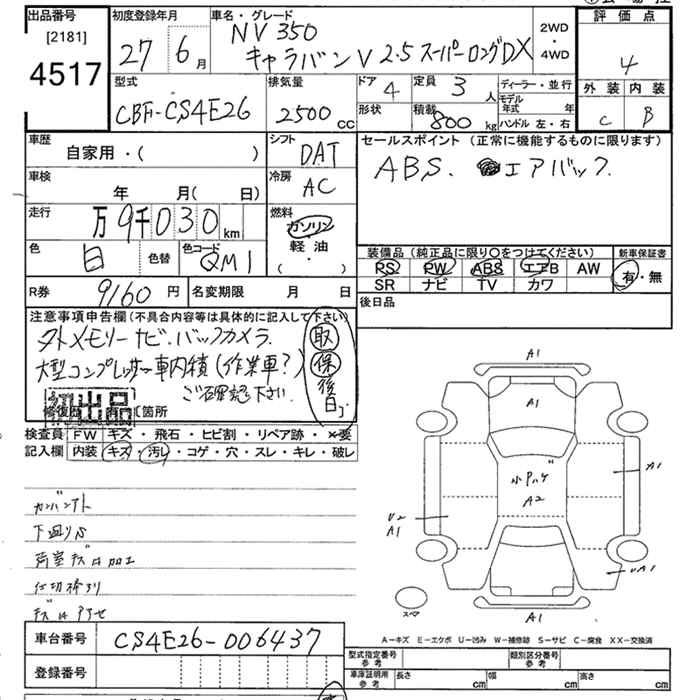 出品番号
[2181]
4517
初度登録年月
27 6月
車名・グレード
NV350
キャラバンV 2.5 スーパーロングDX
2WD
・
4WD
評価点
4
外装 内装
C B
型式
CBF-CS4E26
排気量
2500cc
ドア 4
定員 3人
形状
積載 800kg
ディーラー・並行
モデル年式 年
ハンドル 左・右
車歴
自家用・( )
シフト
DAT
セールスポイント (正常に機能するものに限ります)
ABS. エアバック.
車検
年 月( 日)
冷房
AC
走行
万9千030km
燃料
ガソリン
軽油
( ・ )
色
白
色替
色コード
QM1
装備品 (純正品に限り○をつけてください)
PS PW ABS エアB AW
SR ナビ TV カワ
新車保証書
有・無
R券 9160円
名変期限 月 日
後日品
注意事項申告欄(不具合内容等は具体的に記入して下さい)
外トメモリーナビ.バックカメラ.
大型コンプレッサー車内積(作業車?)
ご確認下さい.
取
保
後日
初出品
修復歴
箇所
検査員記入欄
FW キズ・飛石・ヒビ割・リペア跡・×要
内装 キズ・汚レ・コゲ・穴・スレ・キレ・破レ
下廻りS
荷室キズ 加工
A1
A1
小Pハゲ
A2
A1
U2
A1
UA1
A1
スペア
A−キズ E−エクボ U−凹み W−補修跡 S−サビ C−腐食 XX−交換済
車台番号 CS4E26-006437
登録番号
型式指定番号 参考
類別区分番号 参考
車庫証明用 参考
長さ cm
幅 cm
高さ cm